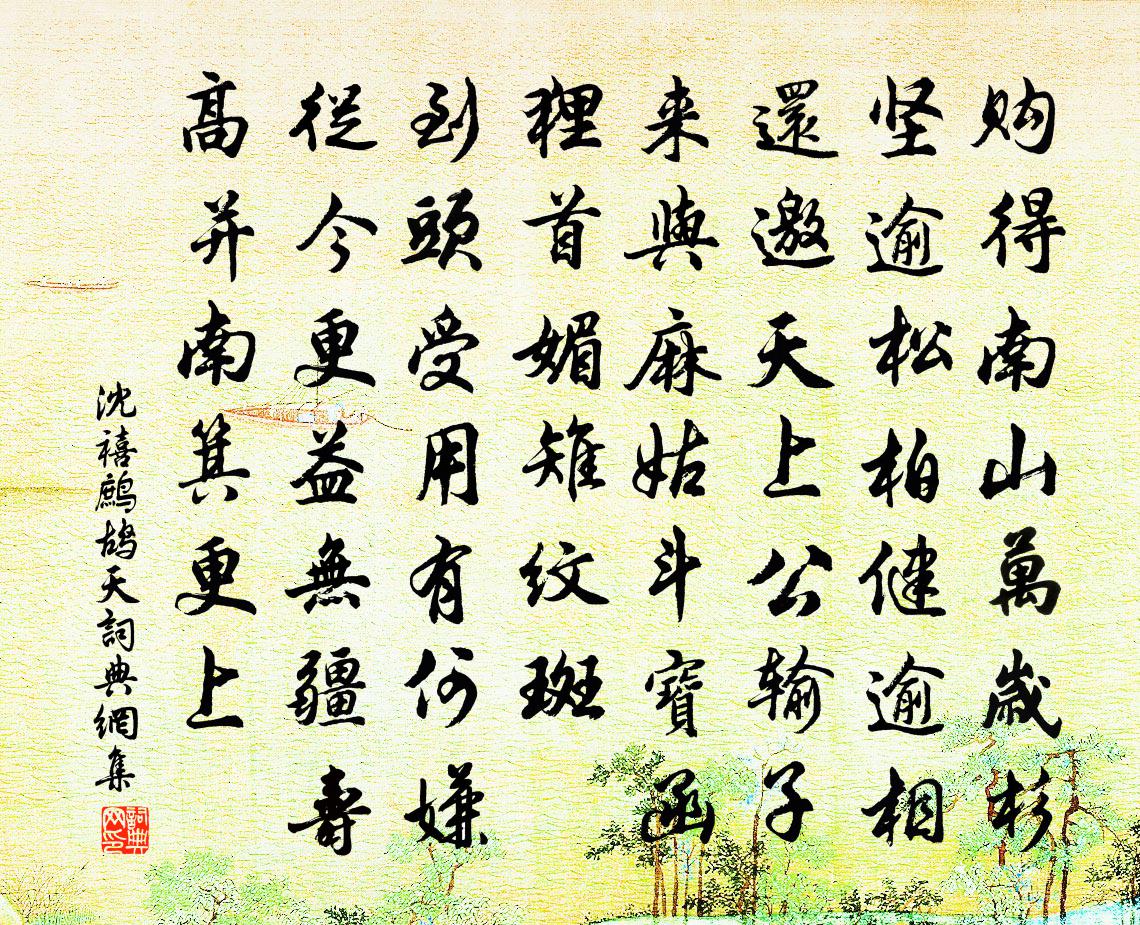 购得南山萬歲杉
坚逾松柏健逾相
還邀天上公输子
来與麻姑斗寶函
裡首媚雉紋斑
到頭受用有何嫌
從今更益無疆壽
高并南箕更上
沈禧鷓鴣天詞典網集
詞典网印